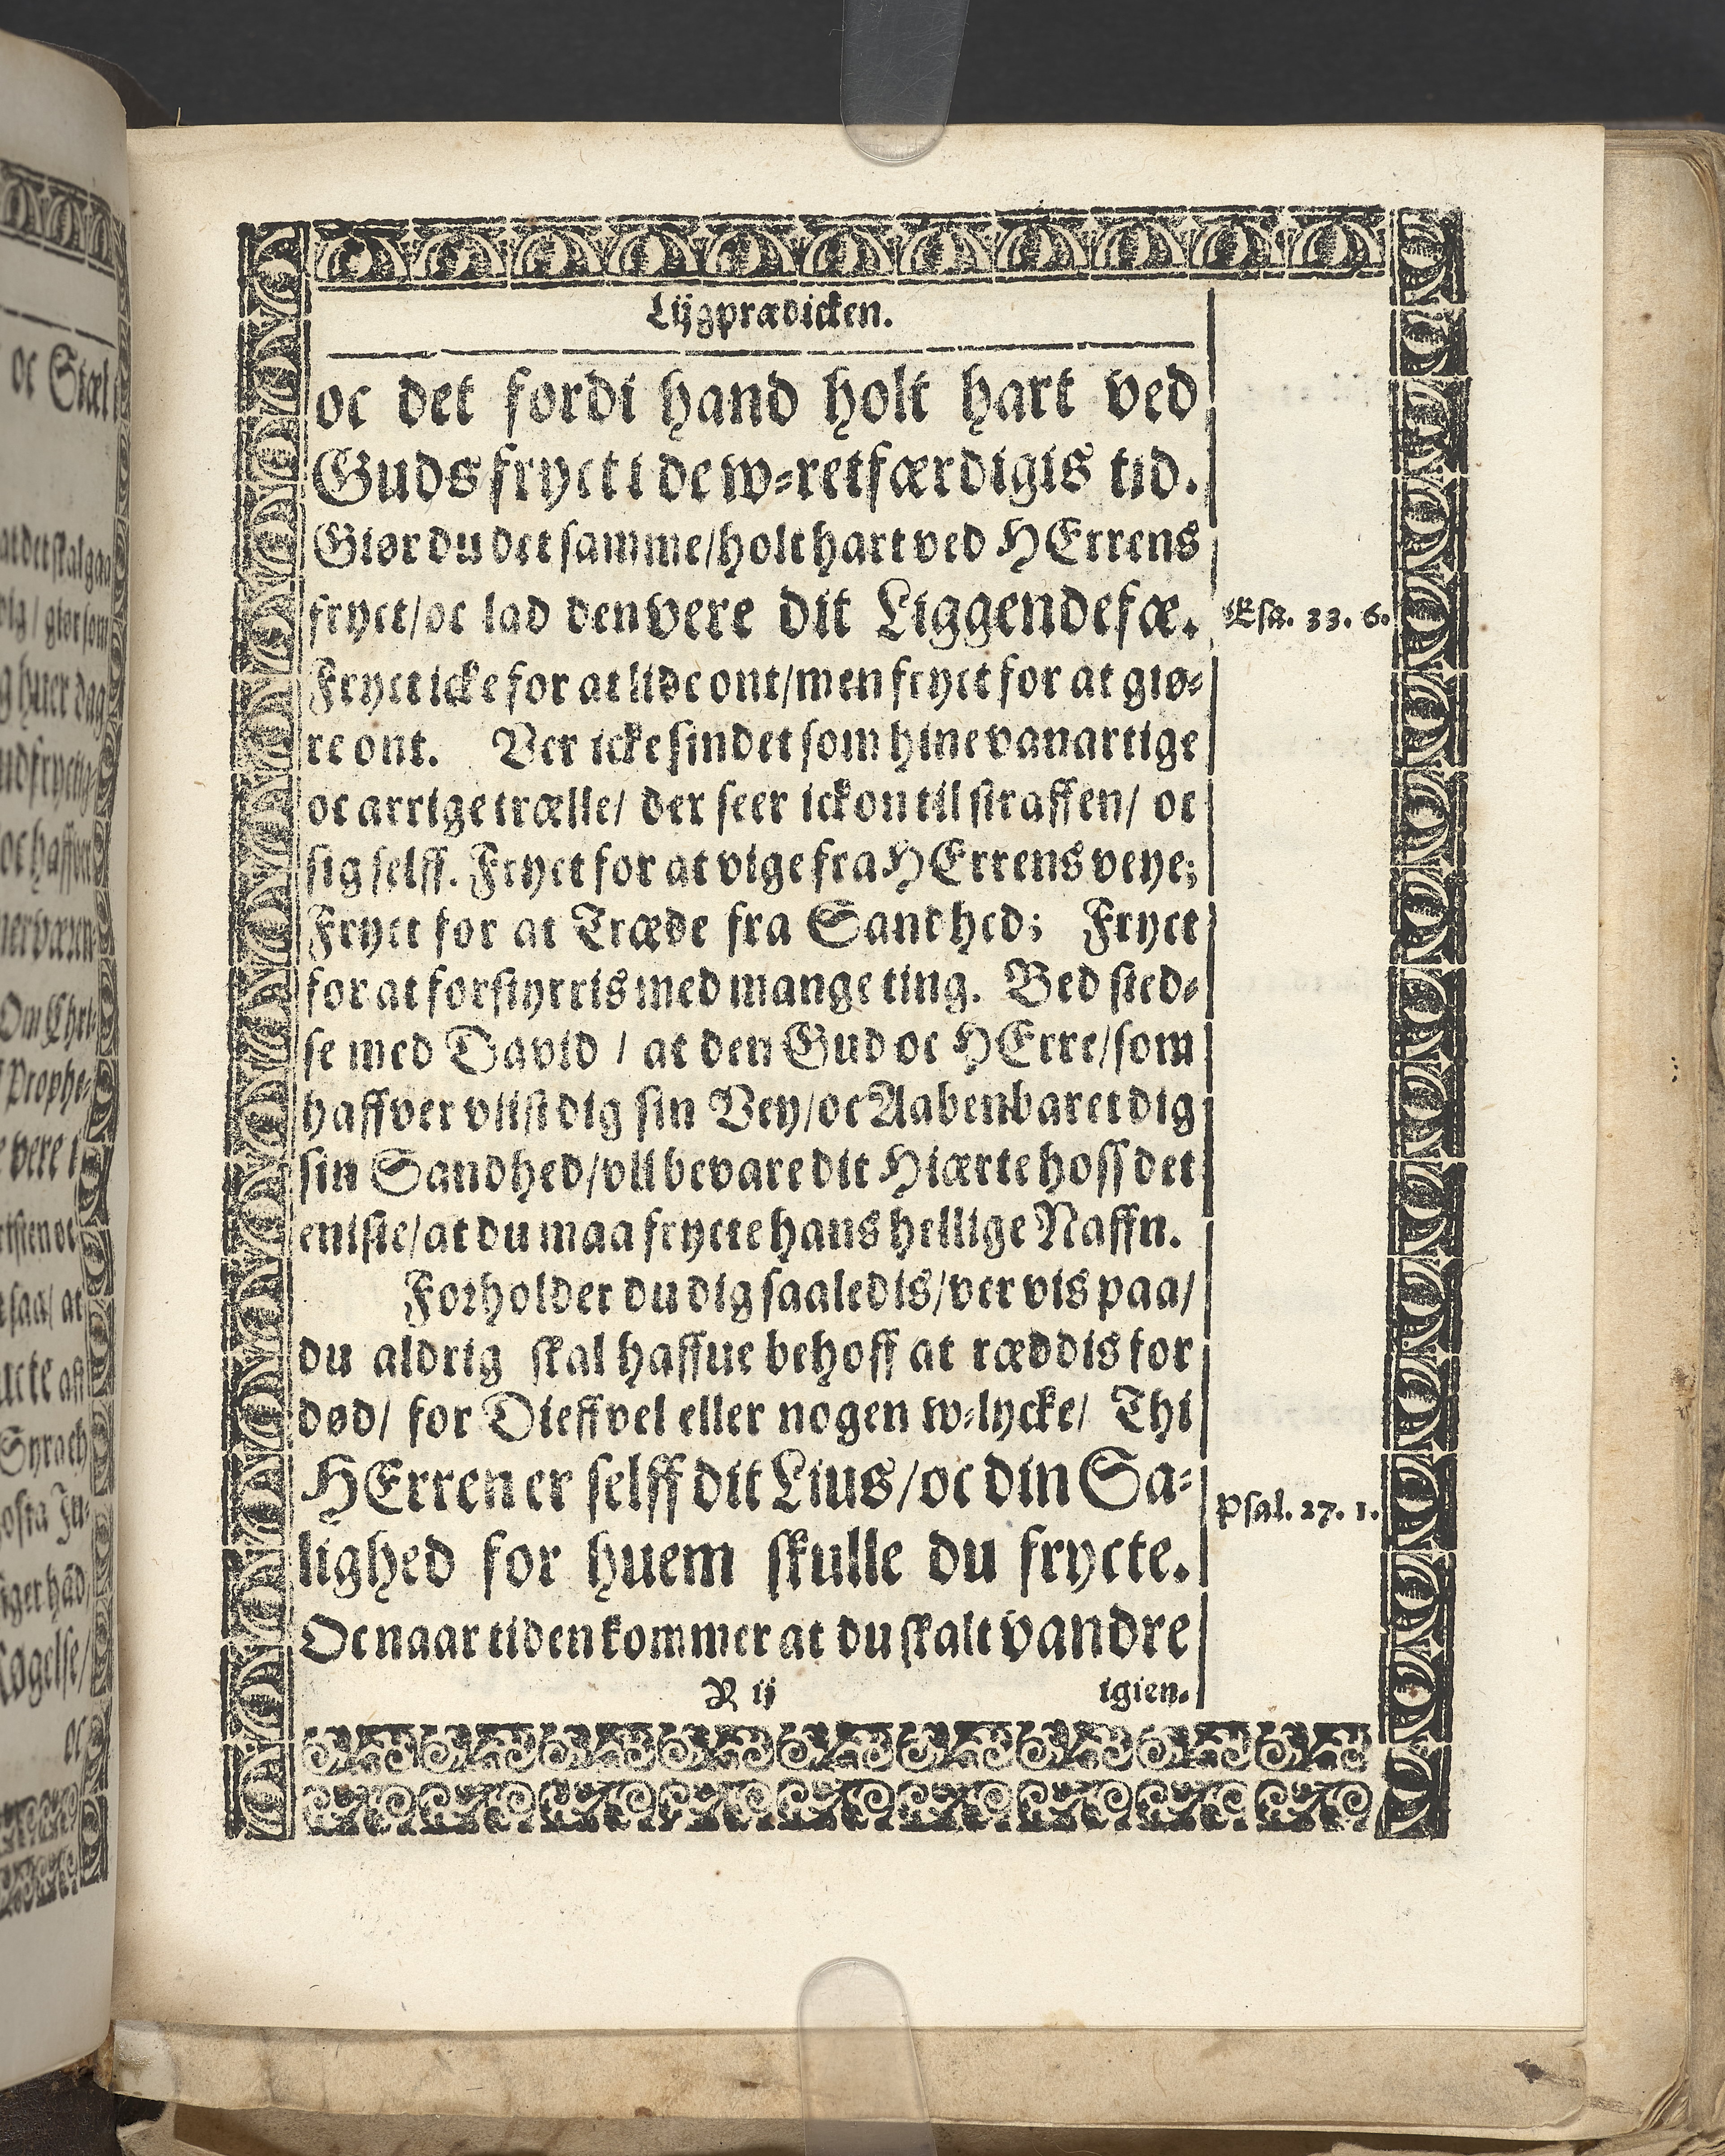 Lijgprædicken.
oc det fordi hand holt hart ved
Guds fryct i de w-retfærdigis tid.
Giør du det samme/holt hart ved HErrens
fryct/oc lad den vere dit Liggendefæ.
Esa. 33. 6.
Fryct icke for at lide ont/men fryct for at giø-
re ont. Ver icke sindet som hine vanartige
oc arrige trælle/ der seer ickon til straffen/ oc
sig selff. Fryct for at vige fra HErrens veye;
Fryct for at Træde fra Sandhed; Fryct
for at forstyrris med mange ting. Bed sted-
se med David / at den Gud oc HErre/som
haffver viist dig sin Vey/oc Aabenbaret dig
sin Sandhed/vil bevare dit Hiærte hoss det
eniste/at du maa frycte hans hellige Naffn.
Forholder du dig saaledis/ver vis paa/
du aldrig skal haffue behoff at ræddis for
død/ for Dieffvel eller nogen w-lycke/ Thi
HErren er selff dit Lius/oc din Sa-
Psal. 27. 1.
lighed for huem skulle du frycte.
Oc naar tiden kommer at du skalt vandre
R ij
igien.
oc Stæl
at det skal gaa
dig/ giør som
g huer dag
oc haffver
Om Chri-
Prophe-
vere i
saa/ at
Syrach
oc